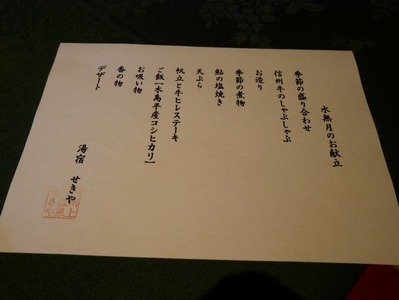 水無月のお献立
季節の盛り合わせ
信州牛のしゃぶしゃぶ
お造り
季節の煮物
鮎の塩焼き
天ぷら
帆立と牛ヒレステーキ
ご飯【木島平産コシヒカリ】
お吸い物
香の物
デザート
湯宿 せきや